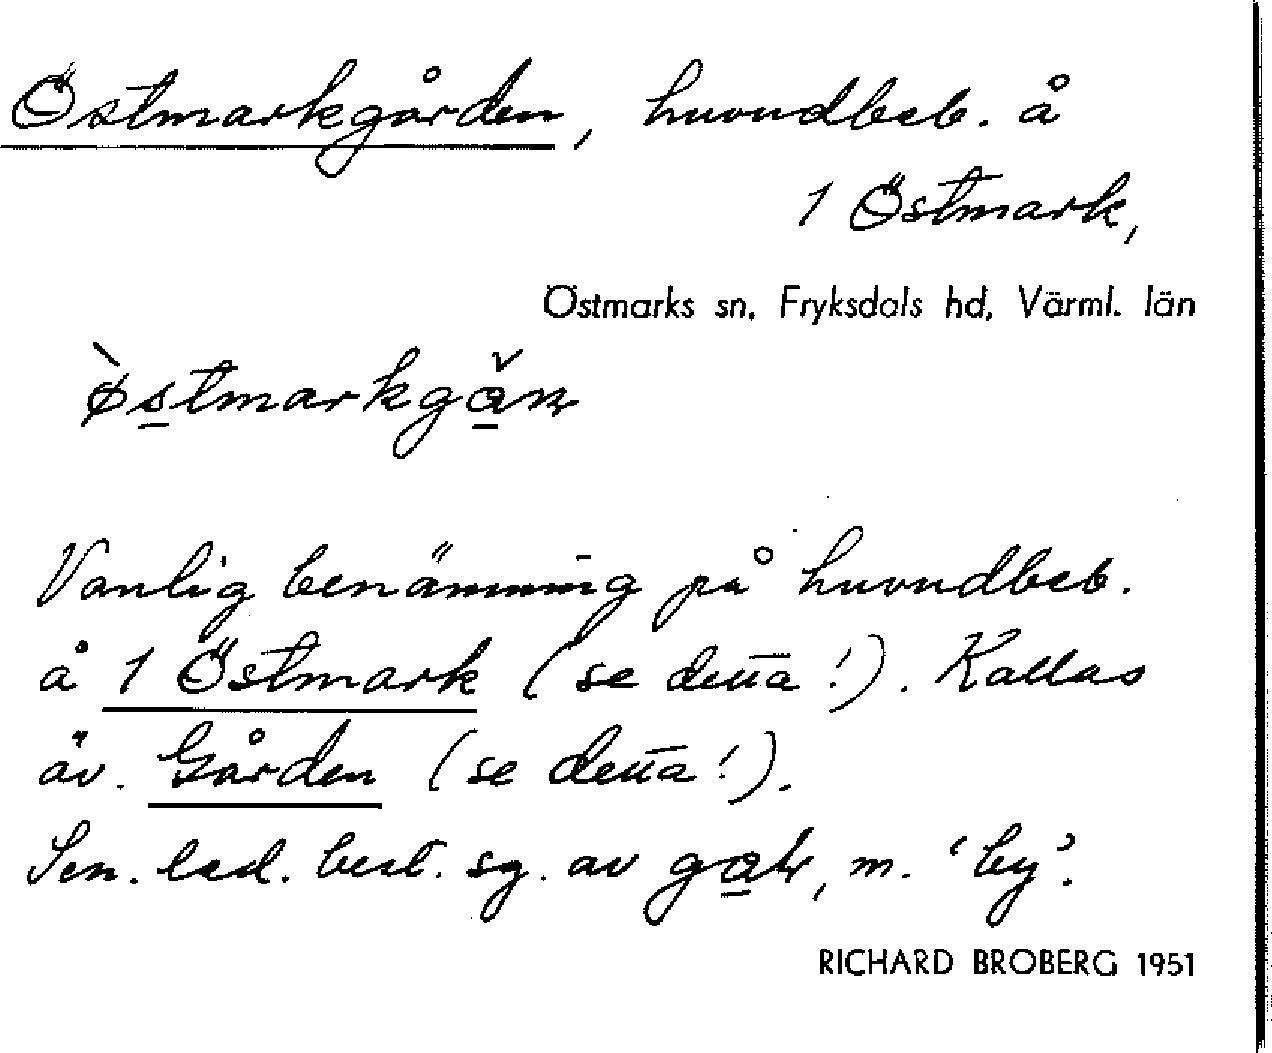 Östmarkgården, huvudbeb. å
1 Östmark,
Östmarks sn, Fryksdals hd, Värml. län
Vanlig benämning på huvudbeb.
å 1 Östmark (se detta!). Kallas
äv. Gården (se detta!).
Sen. led. best. sg. av m. 'by'.
RICHARD BROBERG 1951